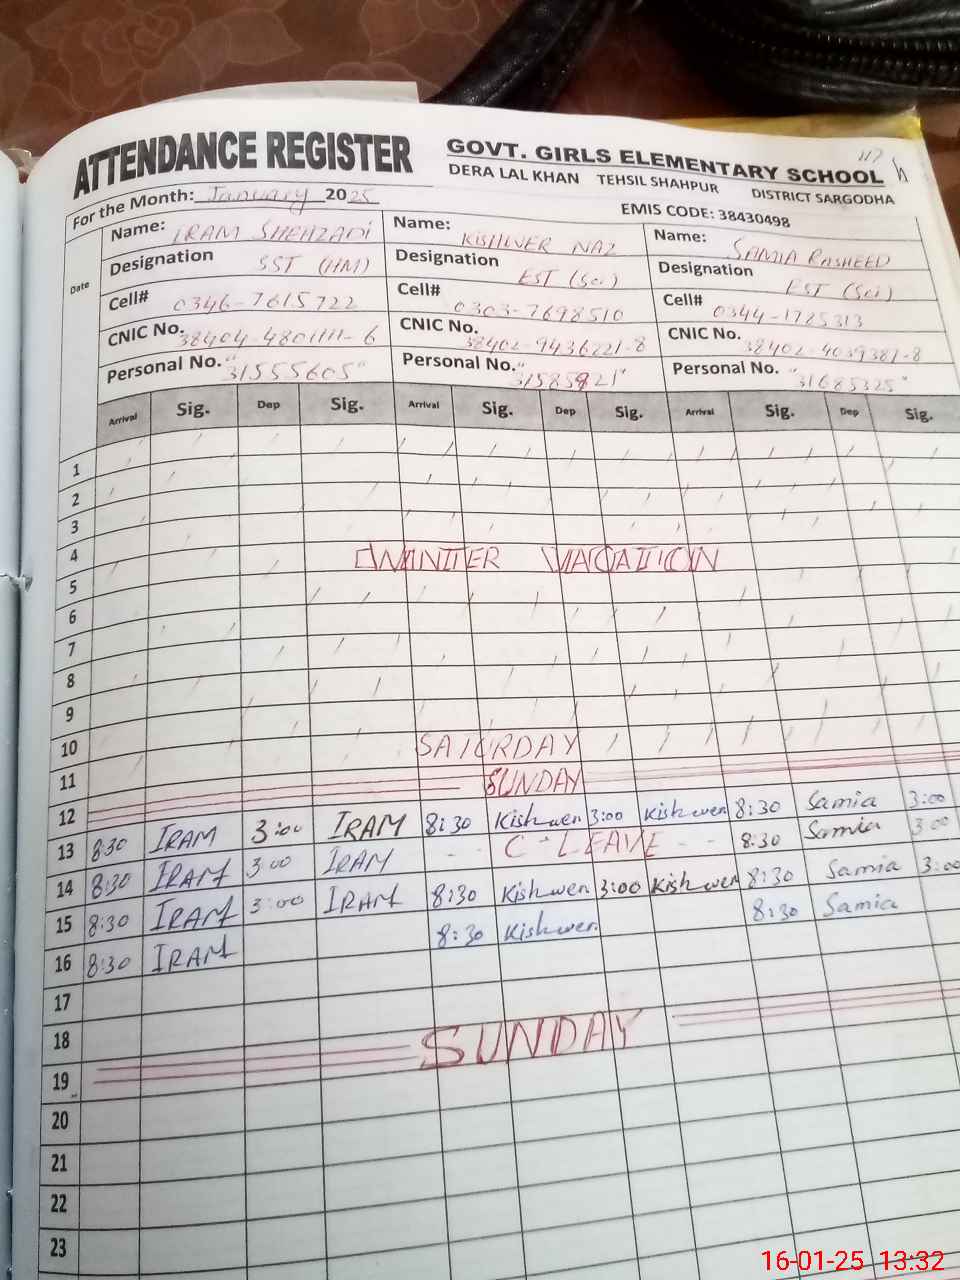 ATTENDANCE REGISTER
GOVT. GIRLS ELEMENTARY SCHOOL
117
DERA LAL KHAN TEHSIL SHAHPUR DISTRICT SARGODHA
For the Month: January 2025
EMIS CODE: 38430498
Date
Name: IRAM SHEHZADI Name: KISHWER NAZ Name: SAMIA RASHEED
Designation SST (HM) Designation EST (Sci) Designation EST (Sci)
Cell# 0346-7615722 Cell# 0303-7698510 Cell# 0344-1785313
CNIC No. 38404-4801111-6 CNIC No. 38402-9436221-8 CNIC No. 38402-4039381-8
Personal No. "31555605" Personal No. "31585921" Personal No. "31685325"
Arrival Sig. Dep Sig. Arrival Sig. Dep Sig. Arrival Sig. Dep Sig.
1
2
3
4 WINTER VACATION
5
6
7
8
9
10 SATURDAY
11 SUNDAY
12
13 8:30 IRAM 3:00 IRAM 8:30 Kishwer 3:00 Kishwer 8:30 Samia 3:00
14 8:30 IRAM 3:00 IRAM - - C-LEAVE - - 8:30 Samia 3:00
15 8:30 IRAM 3:00 IRAM 8:30 Kishwer 3:00 Kishwer 8:30 Samia 3:00
16 8:30 IRAM 8:30 Kishwer 8:30 Samia
17
18 SUNDAY
19
20
21
22
23
16-01-25 13:32